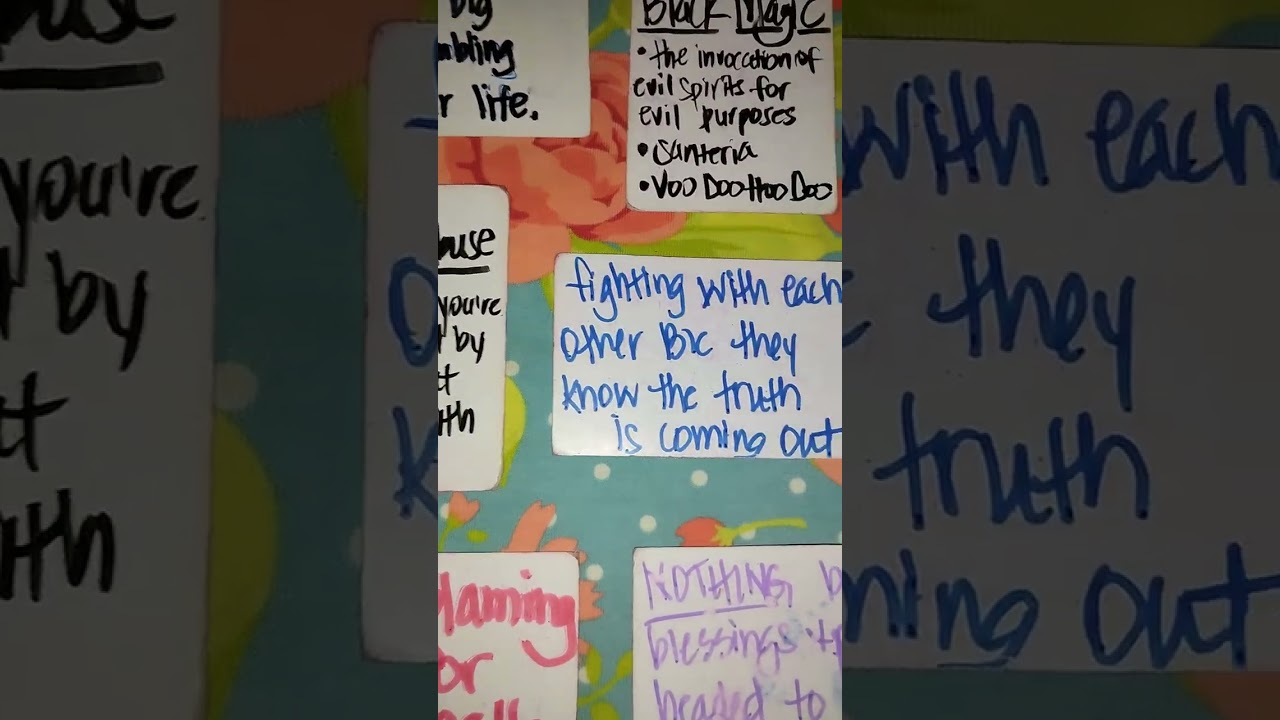 big
r life.
Black Magic
• the invocation of
evil spirits for
evil purposes
• Santeria
• Voo Doo Hoo Doo
you're
by
fighting with each
other B/c they
know the truth
is coming out
or
NOTHING
blessings
headed to
you're
by
with each
they
truth
out